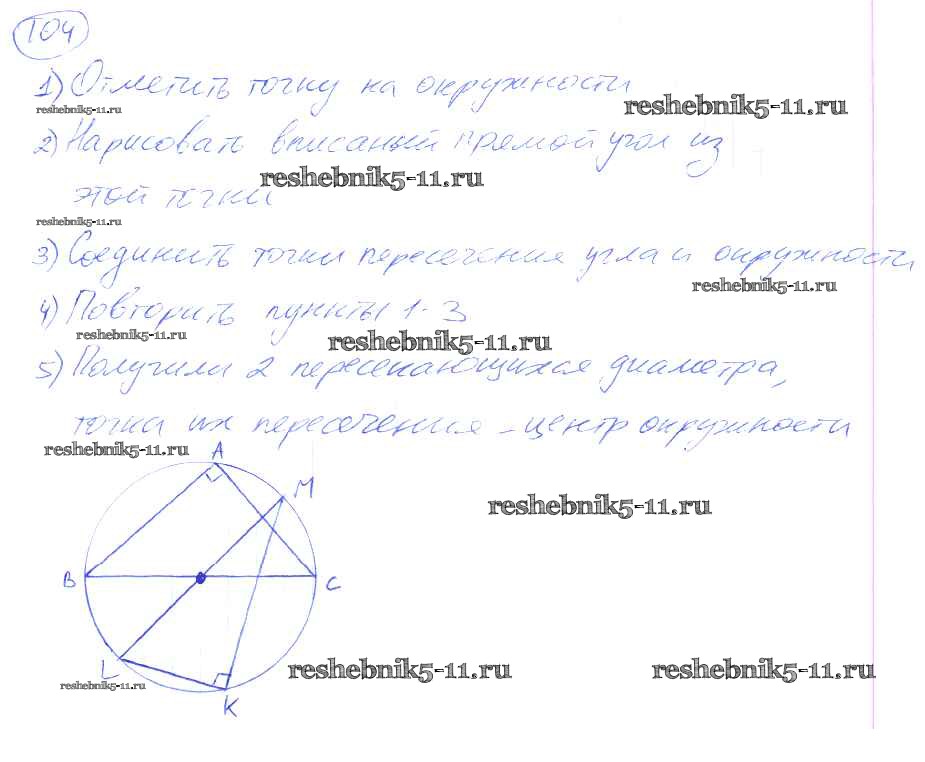 104
1) Отметить точку на окружности
reshebnik5-11.ru reshebnik5-11.ru
2) Нарисовать вписаный прямой угол из
reshebnik5-11.ru
этой точки
reshebnik5-11.ru
3) Соединить точки пересечения угла и окружности
reshebnik5-11.ru
4) Повторить пункты 1-3
reshebnik5-11.ru reshebnik5-11.ru
5) Получили 2 пересекающихся диаметра,
точка их пересечения - центр окружности
reshebnik5-11.ru
A
M
reshebnik5-11.ru
B C
L
reshebnik5-11.ru reshebnik5-11.ru
reshebnik5-11.ru
K